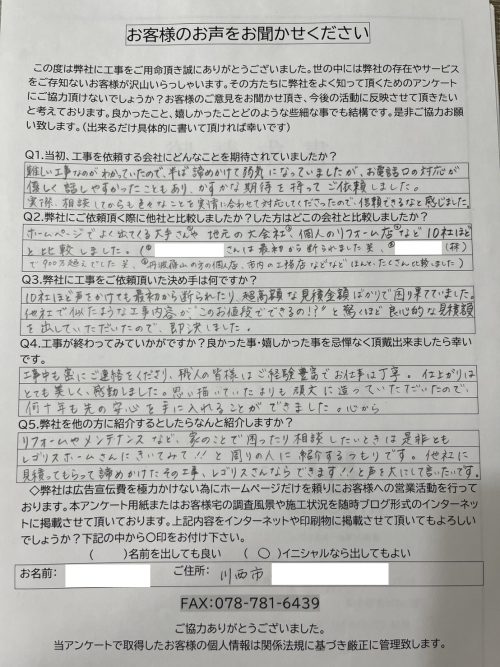 お客様のお声をお聞かせください
この度は弊社に工事をご用命頂き誠にありがとうございました。世の中には弊社の存在やサービス
をご存知ないお客様が沢山いらっしゃいます。その方たちに弊社をよく知って頂くためのアンケート
にご協力頂けないでしょうか?お客様のご意見をお聞かせ頂き、今後の活動に反映させて頂きたい
と考えております。良かったこと、嬉しかったことどのような些細な事でも結構です。是非ご協力お
願い致します。（出来るだけ具体的に書いて頂ければ幸いです）
Q1.当初、工事を依頼する会社にどんなことを期待されていましたか?
難しい工事なのがわかっていたので、半ば諦めかけて弱気になっていましたが、お電話口の対応が
優しく話しやすかったこともあり、かすかな期待を持ってご依頼しました。
実際、相談してからも色々なことを実情に合わせて対応してくださったので、信頼できるなと感じました。
Q2.弊社にご依頼頂く際に他社と比較しましたか?した方はどこの会社と比較しましたか?
ホームページでよく出てくる大手さんや地元の大会社、個人のリフォーム店など10社ほど
と比較しました。(① さんは最初から断られました笑、② (株)
で900万超えでした笑、③丹波篠山の方の個人店、市内の工務店などなどほんと、たくさん比較しました)
Q3.弊社に工事をご依頼頂いた決め手は何ですか?
10社ほど声をかけても最初から断られたり、超高額な見積金額ばかりで困り果てていました。
他社で似たような工事内容が"このお値段でできるの!?"と驚くほど良心的な見積額
を出していただいたので、即決しました。
Q4.工事が終わってみていかがですか?良かった事・嬉しかった事を忌憚なく頂戴出来ましたら幸い
です。
工事中も密にご連絡をくださり、職人の皆様はご経験豊富でお仕事は丁寧。仕上がりは
とても美しく、感動しました。思い描いていたよりも頑丈に造っていただいたので、
何十年も先の安心を手に入れることができました。心から
Q5.弊社を他の方に紹介するとしたらなんと紹介しますか?
リフォームやメンテナンスなど、家のことで困ったり相談したいときは是非とも
レゴリスホームさんにきいてみて!!と周りの人に紹介するつもりです。他社に
見積ってもらって諦めかけたその工事、レゴリスさんならできます!!と声を大にして言いたいです。
◇弊社は広告宣伝費を極力かけない為にホームページだけを頼りにお客様への営業活動を行って
おります。本アンケート用紙またはお客様宅の調査風景や施工状況を随時ブログ形式のインターネッ
トに掲載させて頂いております。上記内容をインターネットや印刷物に掲載させて頂いてもよろしい
でしょうか?下記の中から〇印をお付け下さい。
( )名前を出しても良い ( 〇 )イニシャルなら出してもよい
お名前: ご住所: 川西市
FAX:078-781-6439
ご協力ありがとうございました。
当アンケートで取得したお客様の個人情報は関係法規に基づき厳正に管理致します。